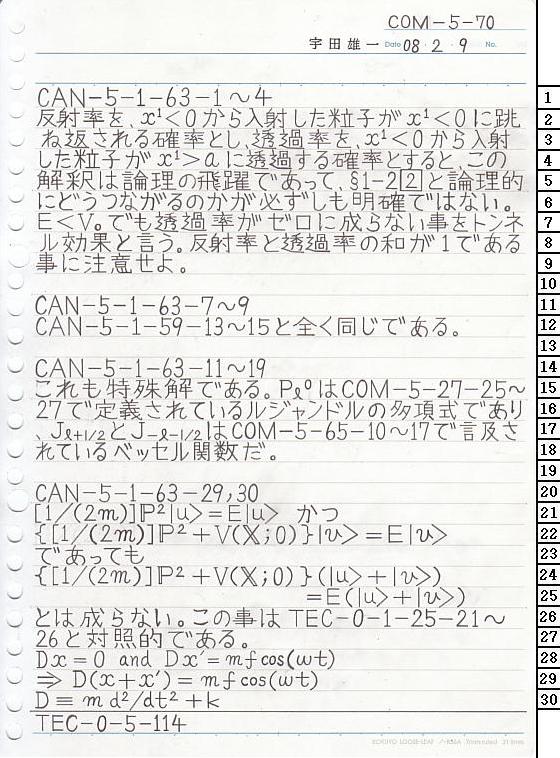 COM-5-70
宇田雄一 Date 08・2・9 No.
CAN-5-1-63-1～4
反射率を、x¹<0から入射した粒子がx¹<0に跳
ね返される確率とし、透過率を、x¹<0から入射
した粒子がx¹>aに透過する確率とすると、この
解釈は論理の飛躍であって、§1-2②と論理的
にどうつながるのかが必ずしも明確ではない。
E<V。でも透過率がゼロに成らない事をトンネ
ル効果と言う。反射率と透過率の和が1である
事に注意せよ。
CAN-5-1-63-7～9
CAN-5-1-59-13～15と全く同じである。
CAN-5-1-63-11～19
これも特殊解である。Pℓ⁰はCOM-5-27-25～
27で定義されているルジャンドルの多項式であり
、Jℓ+1/2とJ-ℓ-1/2はCOM-5-65-10～17で言及さ
れているベッセル関数だ。
CAN-5-1-63-29,30
[1/(2m)]ℙ²|u>=E|u> かつ
{[1/(2m)]ℙ²+V(𝕏;0)}|v>=E|v>
であっても
{[1/(2m)]ℙ²+V(𝕏;0)}(|u>+|v>)
=E(|u>+|v>)
とは成らない。この事はTEC-0-1-25-21～
26と対照的である。
Dx=0 and Dx'=mfcos(ωt)
⇒D(x+x')=mfcos(ωt)
D≡md²/dt²+k
TEC-0-5-114
KOKUYO LOOSE-LEAF ノ-836A 7mm ruled 31 lines
1
2
3
4
5
6
7
8
9
10
11
12
13
14
15
16
17
18
19
20
21
22
23
24
25
26
27
28
29
30